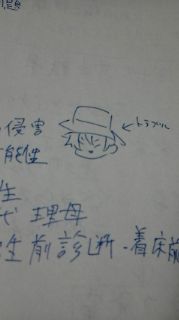 題
侵害
能性
←トラブル
性
代理母
生前診断・着床前